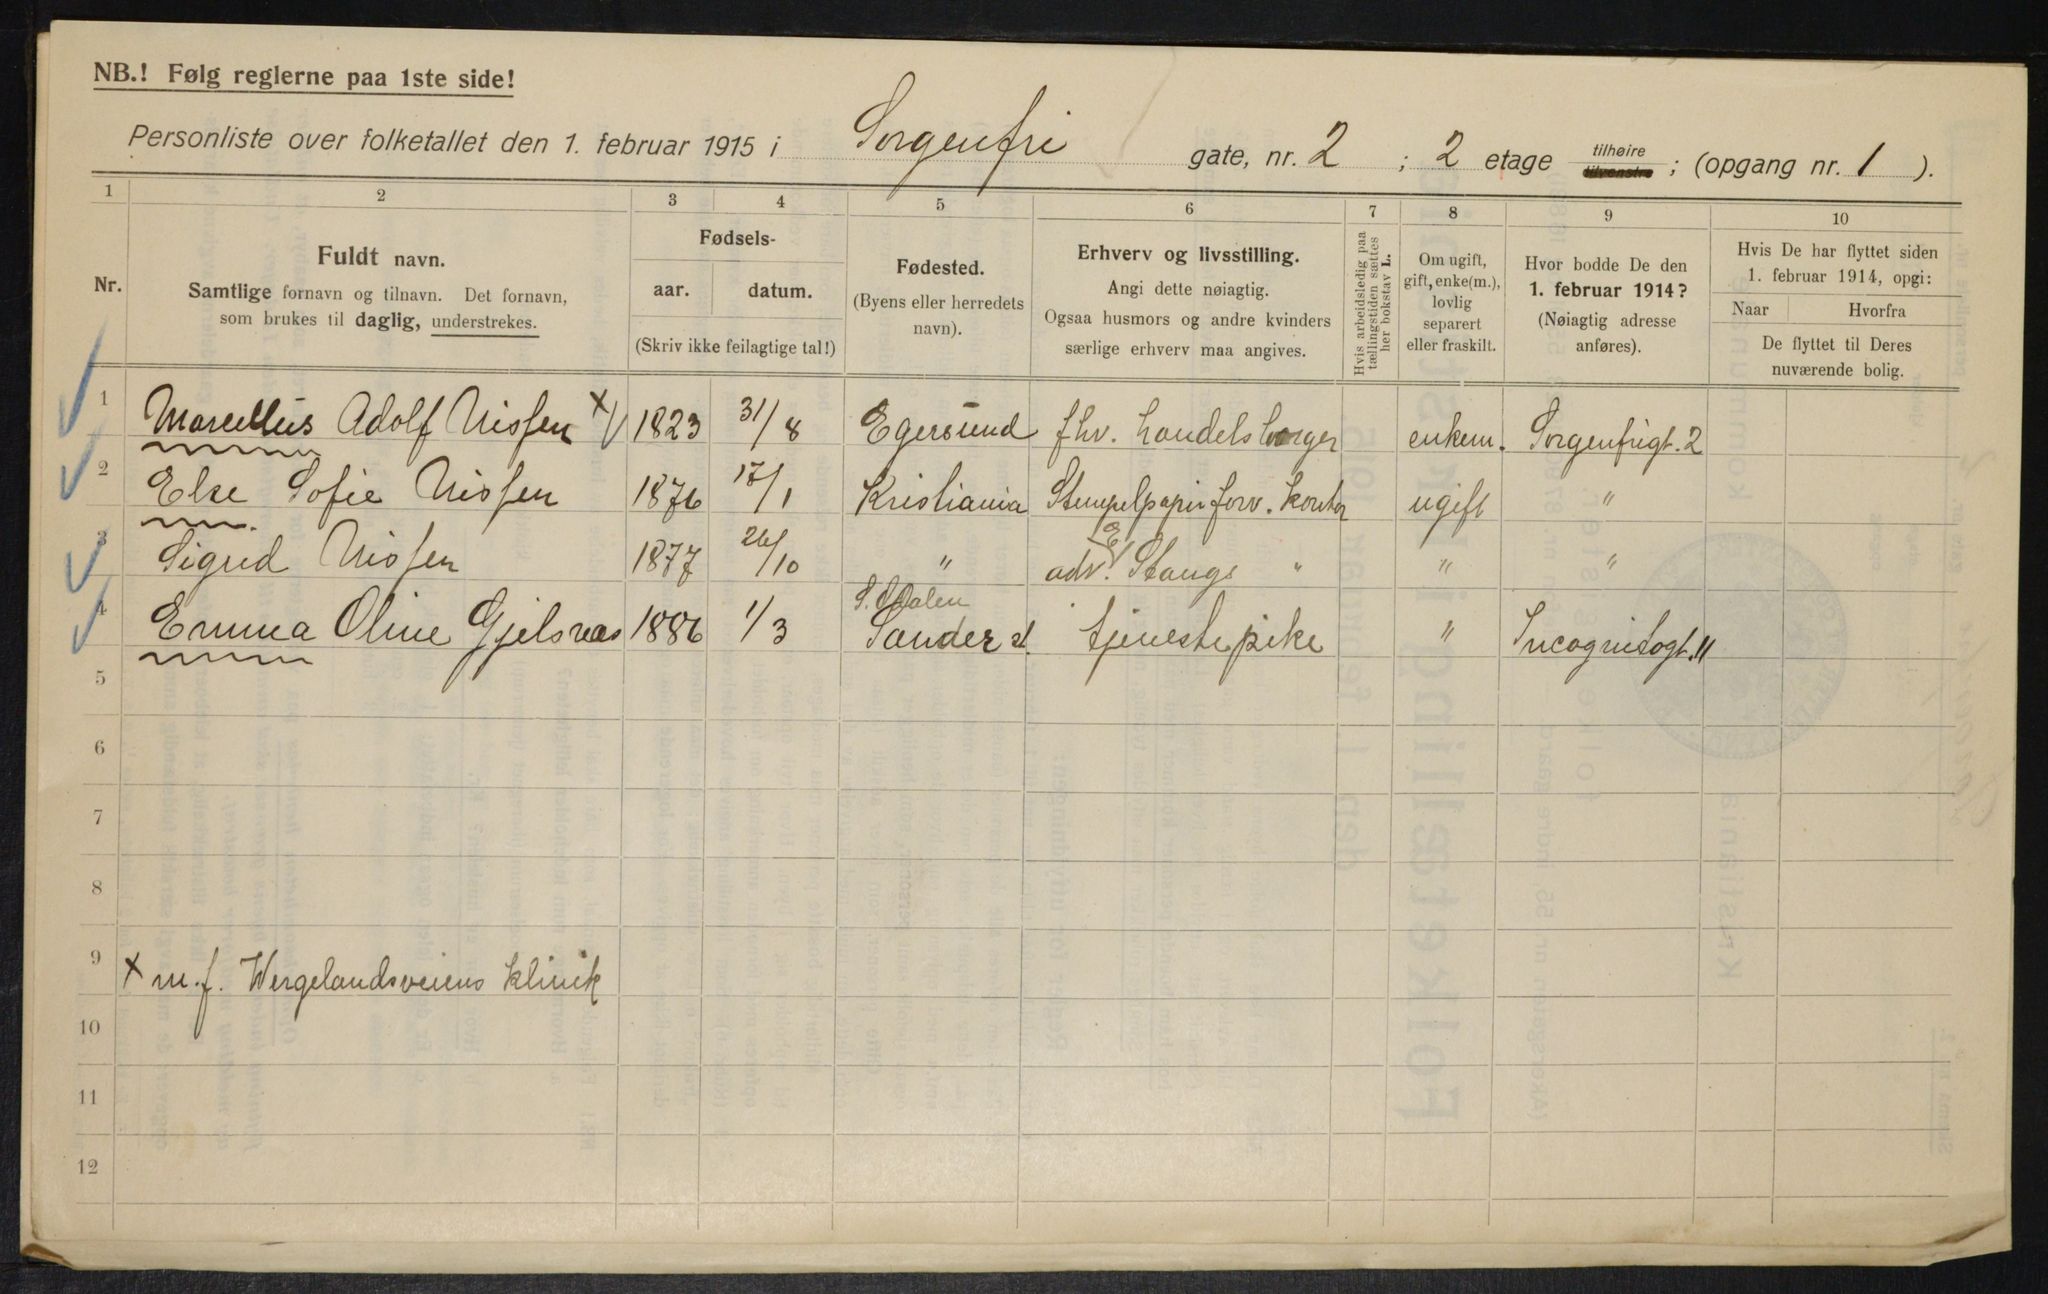 NB.! Følg reglerne paa 1ste side!
Personliste over folketallet den 1. februar 1915 i Sorgenfri gate, nr. 2 ; 2 etage tilhøire tilvenstre ; (opgang nr. 1 ).
1 2 3 4 5 6 7 8 9 10
Nr.
Fuldt navn.
Samtlige fornavn og tilnavn. Det fornavn,
som brukes til daglig, understrekes.
Fødsels-
aar. datum.
(Skriv ikke feilagtige tal!)
Fødested.
(Byens eller herredets
navn).
Erhverv og livsstilling.
Angi dette nøiagtig.
Ogsaa husmors og andre kvinders
særlige erhverv maa angives.
Hvis arbeidsledig paa
tællingstiden sættes
her bokstav L.
Om ugift,
gift, enke(m.),
lovlig
separert
eller fraskilt.
Hvor bodde De den
1. februar 1914?
(Nøiagtig adresse
anføres).
Hvis De har flyttet siden
1. februar 1914, opgi:
Naar Hvorfra
De flyttet til Deres
nuværende bolig.
1 Marcellus Adolf Nissen x 1823 31/8 Egersund fhv. handelsborger enkem. Sorgenfrigt. 2
2 Else Sofie Nissen 1876 17/1 Kristiania Stempelpapirforv. kontor ugift "
3 Sigrid Nissen 1877 26/10 " adv. E. Stangs " " "
4 Emma Oline Gjelsnes 1886 1/3 S. Odalen Sander st. tjenestepike " Incognitogt. 11
5
6
7
8
9 x m. f. Wergelandsveiens klinik
10
11
12